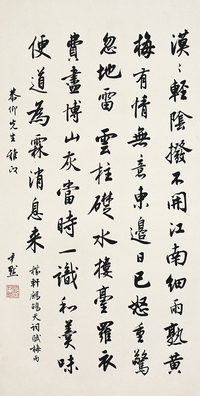 漠〻輕陰撥不開江南細雨熟黃
梅有情無意東邊日已怒重驚
忽地雷雲柱礎水樓臺羅衣
費盡博山灰當時一識和羹味
便道為霖消息来
稼軒鷓鴣天詞賦梅雨
尹默
先生雅政